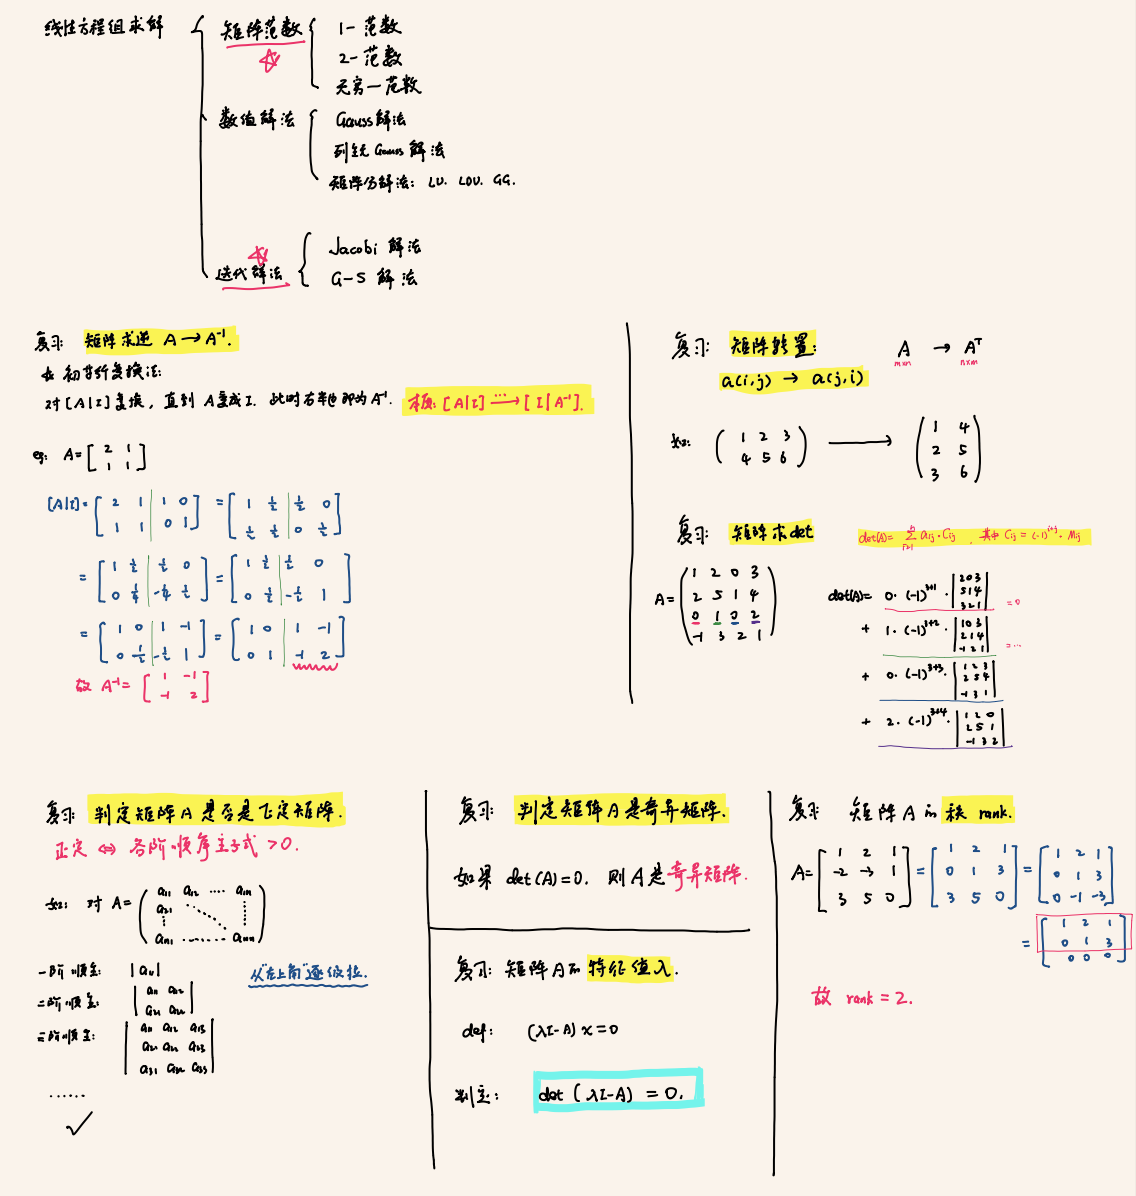 线性方程组求解
矩阵范数
1-范数
2-范数
无穷-范数
数值解法
Gauss解法
列主元Gauss解法
矩阵分解法: LU. LDU. GG.
迭代解法
Jacobi 解法
G-S 解法
复习: 矩阵求逆 A→A⁻¹.
初等行变换法:
对[A|I]变换, 直到 A变成I. 此时右半边即为A⁻¹. 本质: [A|I] ⋯→ [I|A⁻¹].
eg: A= [2 1
1 1]
[A|I]= [2 1 | 1 0
1 1 | 0 1] = [1 ½ | ½ 0
½ ½ | 0 ½]
= [1 ½ | ½ 0
0 ¼ | -¼ ½] = [1 ½ | ½ 0
0 ½ | -½ 1]
= [1 0 | 1 -1
0 ½ | -½ 1] = [1 0 | 1 -1
0 1 | -1 2]
故 A⁻¹= [1 -1
-1 2]
复习: 矩阵转置:
A → Aᵀ
m×n n×m
a(i,j) → a(j,i)
如: (1 2 3
4 5 6) → (1 4
2 5
3 6)
复习: 矩阵求det
det(A)= Σ aij·Cij . 其中 Cij = (-1)^(i+j)·Mij
A= (1 2 0 3
2 5 1 4
0 1 0 2
-1 3 2 1)
det(A)= 0·(-1)³⁺¹· |2 0 3
5 1 4
3 2 1| =0
+ 1·(-1)³⁺²· |1 0 3
2 1 4
-1 2 1| =...
+ 0·(-1)³⁺³· |1 2 3
2 5 4
-1 3 1|
+ 2·(-1)³⁺⁴· |1 2 0
2 5 1
-1 3 2|
复习: 判定矩阵A是否是正定矩阵.
正定 ⇔ 各阶顺序主子式 >0.
如: 对 A= (a11 a12 ···· a1n
a21
an1 ······· ann)
一阶顺主: |a11|
从“左上角”逐级拉.
二阶顺主: |a11 a12
a21 a22|
三阶顺主: |a11 a12 a13
a21 a22 a23
a31 a32 a33|
······
复习: 判定矩阵A是奇异矩阵.
如果 det(A)=0. 则A是奇异矩阵.
复习: 矩阵A的特征值λ.
def: (λI-A)x=0
判定: det(λI-A) = 0.
复习: 矩阵A的秩 rank.
A= [1 2 1
-2 -3 1
3 5 0] = [1 2 1
0 1 3
3 5 0] = [1 2 1
0 1 3
0 -1 -3]
= [1 2 1
0 1 3
0 0 0]
故 rank = 2.